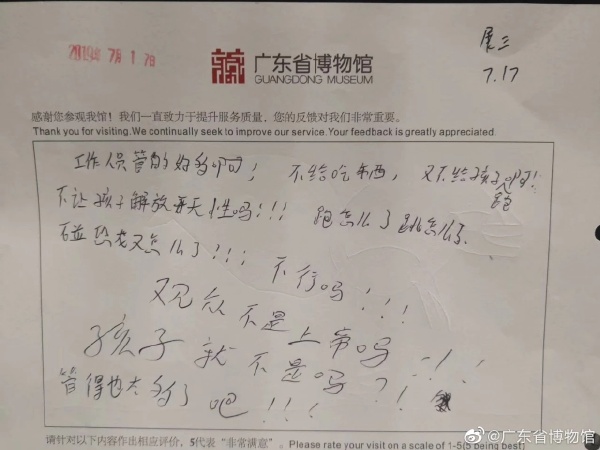 2019年7月17日
廣東省博物館
GUANGDONG MUSEUM
展三
7.17
感谢您参观我馆！我们一直致力于提升服务质量，您的反馈对我们非常重要。
Thank you for visiting.We continually seek to improve our service.Your feedback is greatly appreciated.
工作人员管的好多啊！不给吃东西，又不给孩子跑啊！
不让孩子解放天性吗！！！跑怎么了跳怎么了
碰恐龙又怎么了！！！
不行吗！！！
观众不是上帝吗！！！
孩子就不是吗？！
管得也太多了吧！！！
请针对以下内容作出相应评价，5代表“非常满意”。Please rate your visit on a scale of 1-5(5 being best)
@广东省博物馆